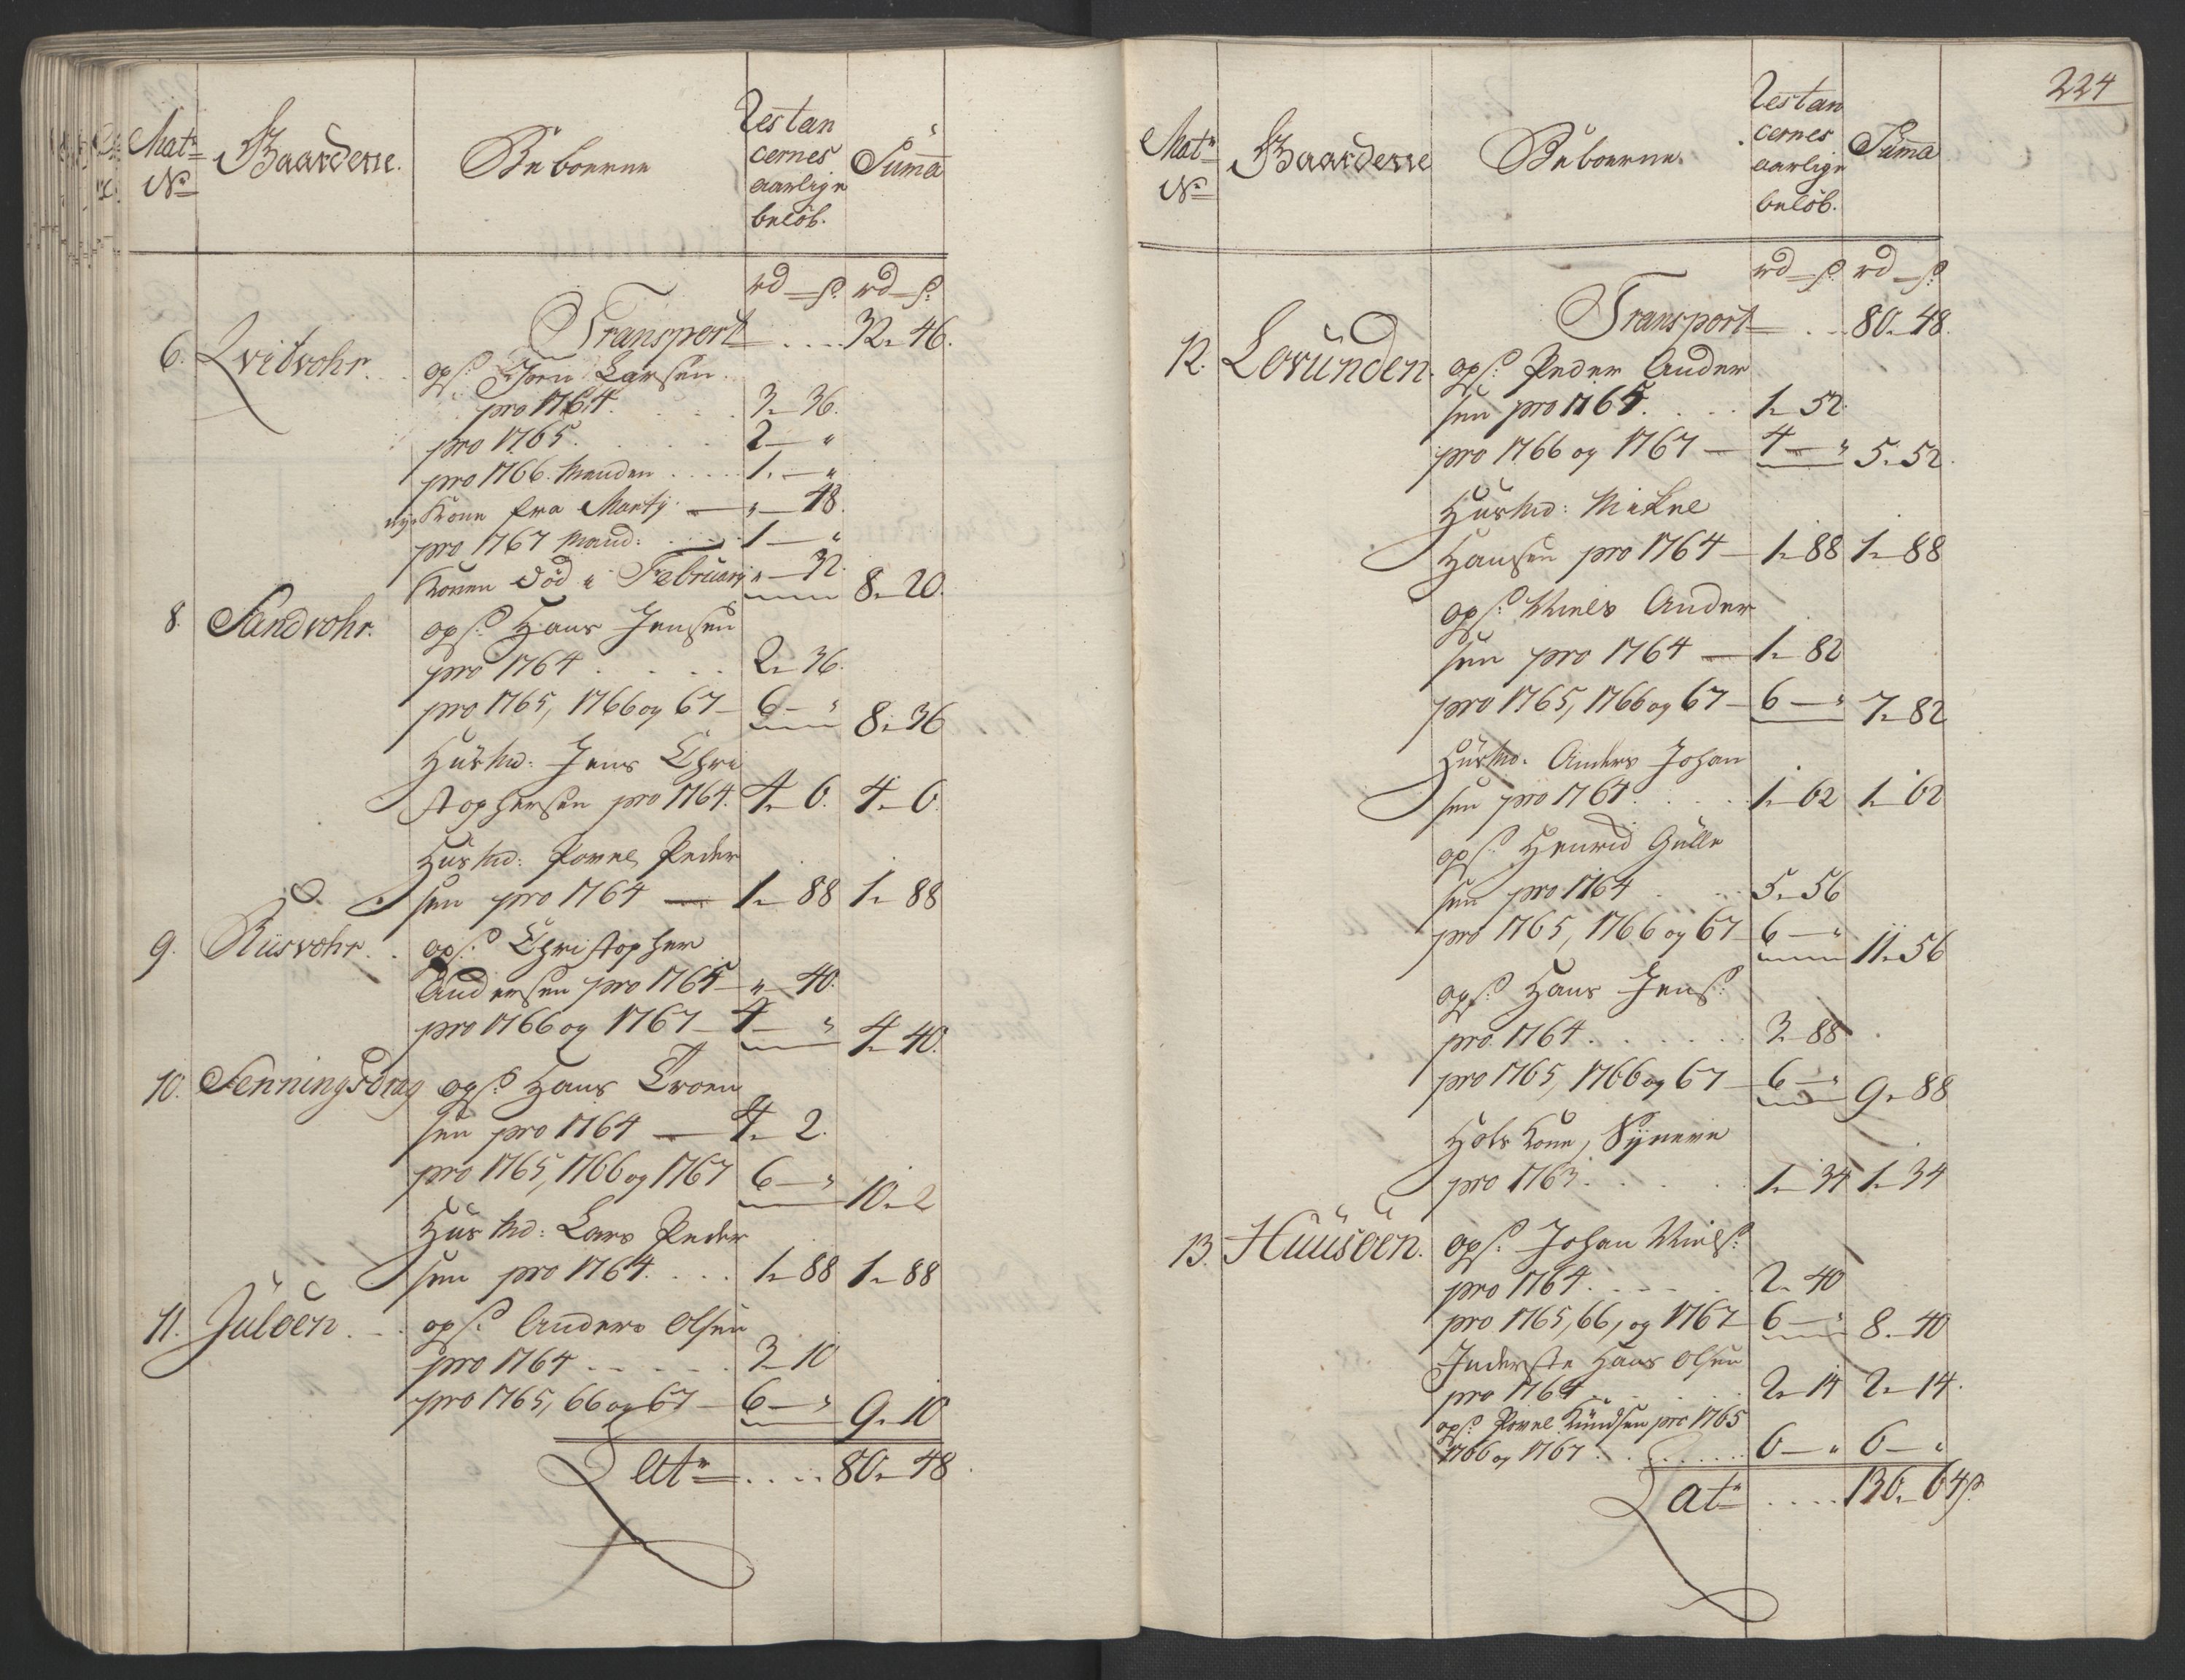 Matr
No
Gaarderne.
Beboerne
Restan
cernes
aarlige
beløb.
Summa
rd — s. rd — s.
Transport .... 32 - 46.
6. Qvitvohr. . ops. Joen Larsen
pro 1764. . . . 3 - 36.
pro 1765. . . . 2 — "
pro 1766. Manden . . . . 1. — "
Kone fra Martij — " — 48.
pro 1767 Mand: . . . . 1 — "
Konen død i Februarij " — 32. 8 - 20.
8. Sandvohr. ops. Hans Jensen
pro 1764 . . . . 2 - 36.
pro 1765, 1766 og 67 — 6 — " 8 - 36
Husmd: Jens Chri
stophersen pro 1764. 4 - 6. 4 - 6.
Husmd: Povel Peder
sen pro 1764 — 1 - 88 1 - 88
9. Riisvohr. . ops. Christopher
Andersen pro 1765 — " — 40.
pro 1766 og 1767 — 4 — " 4 - 40.
10. Senningsdrag ops. Hans Troen
sen pro 1764 — 4 - 2.
pro 1765, 1766 og 1767 6 — " 10 - 2
Husmd: Lars Peder
sen pro 1764. . . . 1 - 88 1 - 88
11. Juløen . . . ops. Anders Olsen
pro 1764 . . . . . 3 - 10
pro 1765, 66 og 67 — 6 — " 9 - 10
Latr .... 80 - 48.
224
Matr
No
Gaarderne
Beboerne.
Restan
cernes
aarlige
beløb.
Summa
rd — s. rd — s.
Transport . . . 80 - 48.
12. Lovunden. ops. Peder Ander
sen pro 1765. . . . 1 - 52.
pro 1766 og 1767 — 4 — " 5 - 52.
Husmd: Mikel
Hansen pro 1764 — 1 - 88 1 - 88
ops. Niels Ander
sen pro 1764 — 1 - 82
pro 1765, 1766 og 67 — 6 — " 7 - 82
Husmd. Anders Johan
sen pro 1764. . . . 1 - 62 1 - 62
ops. Henrich Gulle
sen pro 1764 . . . 5 - 56
pro 1765, 1766 og 67 — 6 — " 11 - 56
ops. Hans Jens.
pro 1764 . . . . . . 3 - 88
pro 1765, 1766 og 67 — 6 — " 9 - 88
Kone, Synneve
pro 1763. . . . . 1 - 34 1 - 34
13. Huusøen. ops. Johan Niels.
pro 1764 . . . . . 2 - 40
pro 1765, 66, og 1767 — 6 — " 8 - 40
Inderste Hans Olsen
pro 1764 . . . . . 2 - 14 2 - 14.
ops. Povel Knudsen pro 1765
1766 og 1767 . . . . . . 6 — " 6 — "
Latr .... 136 - 64 s.